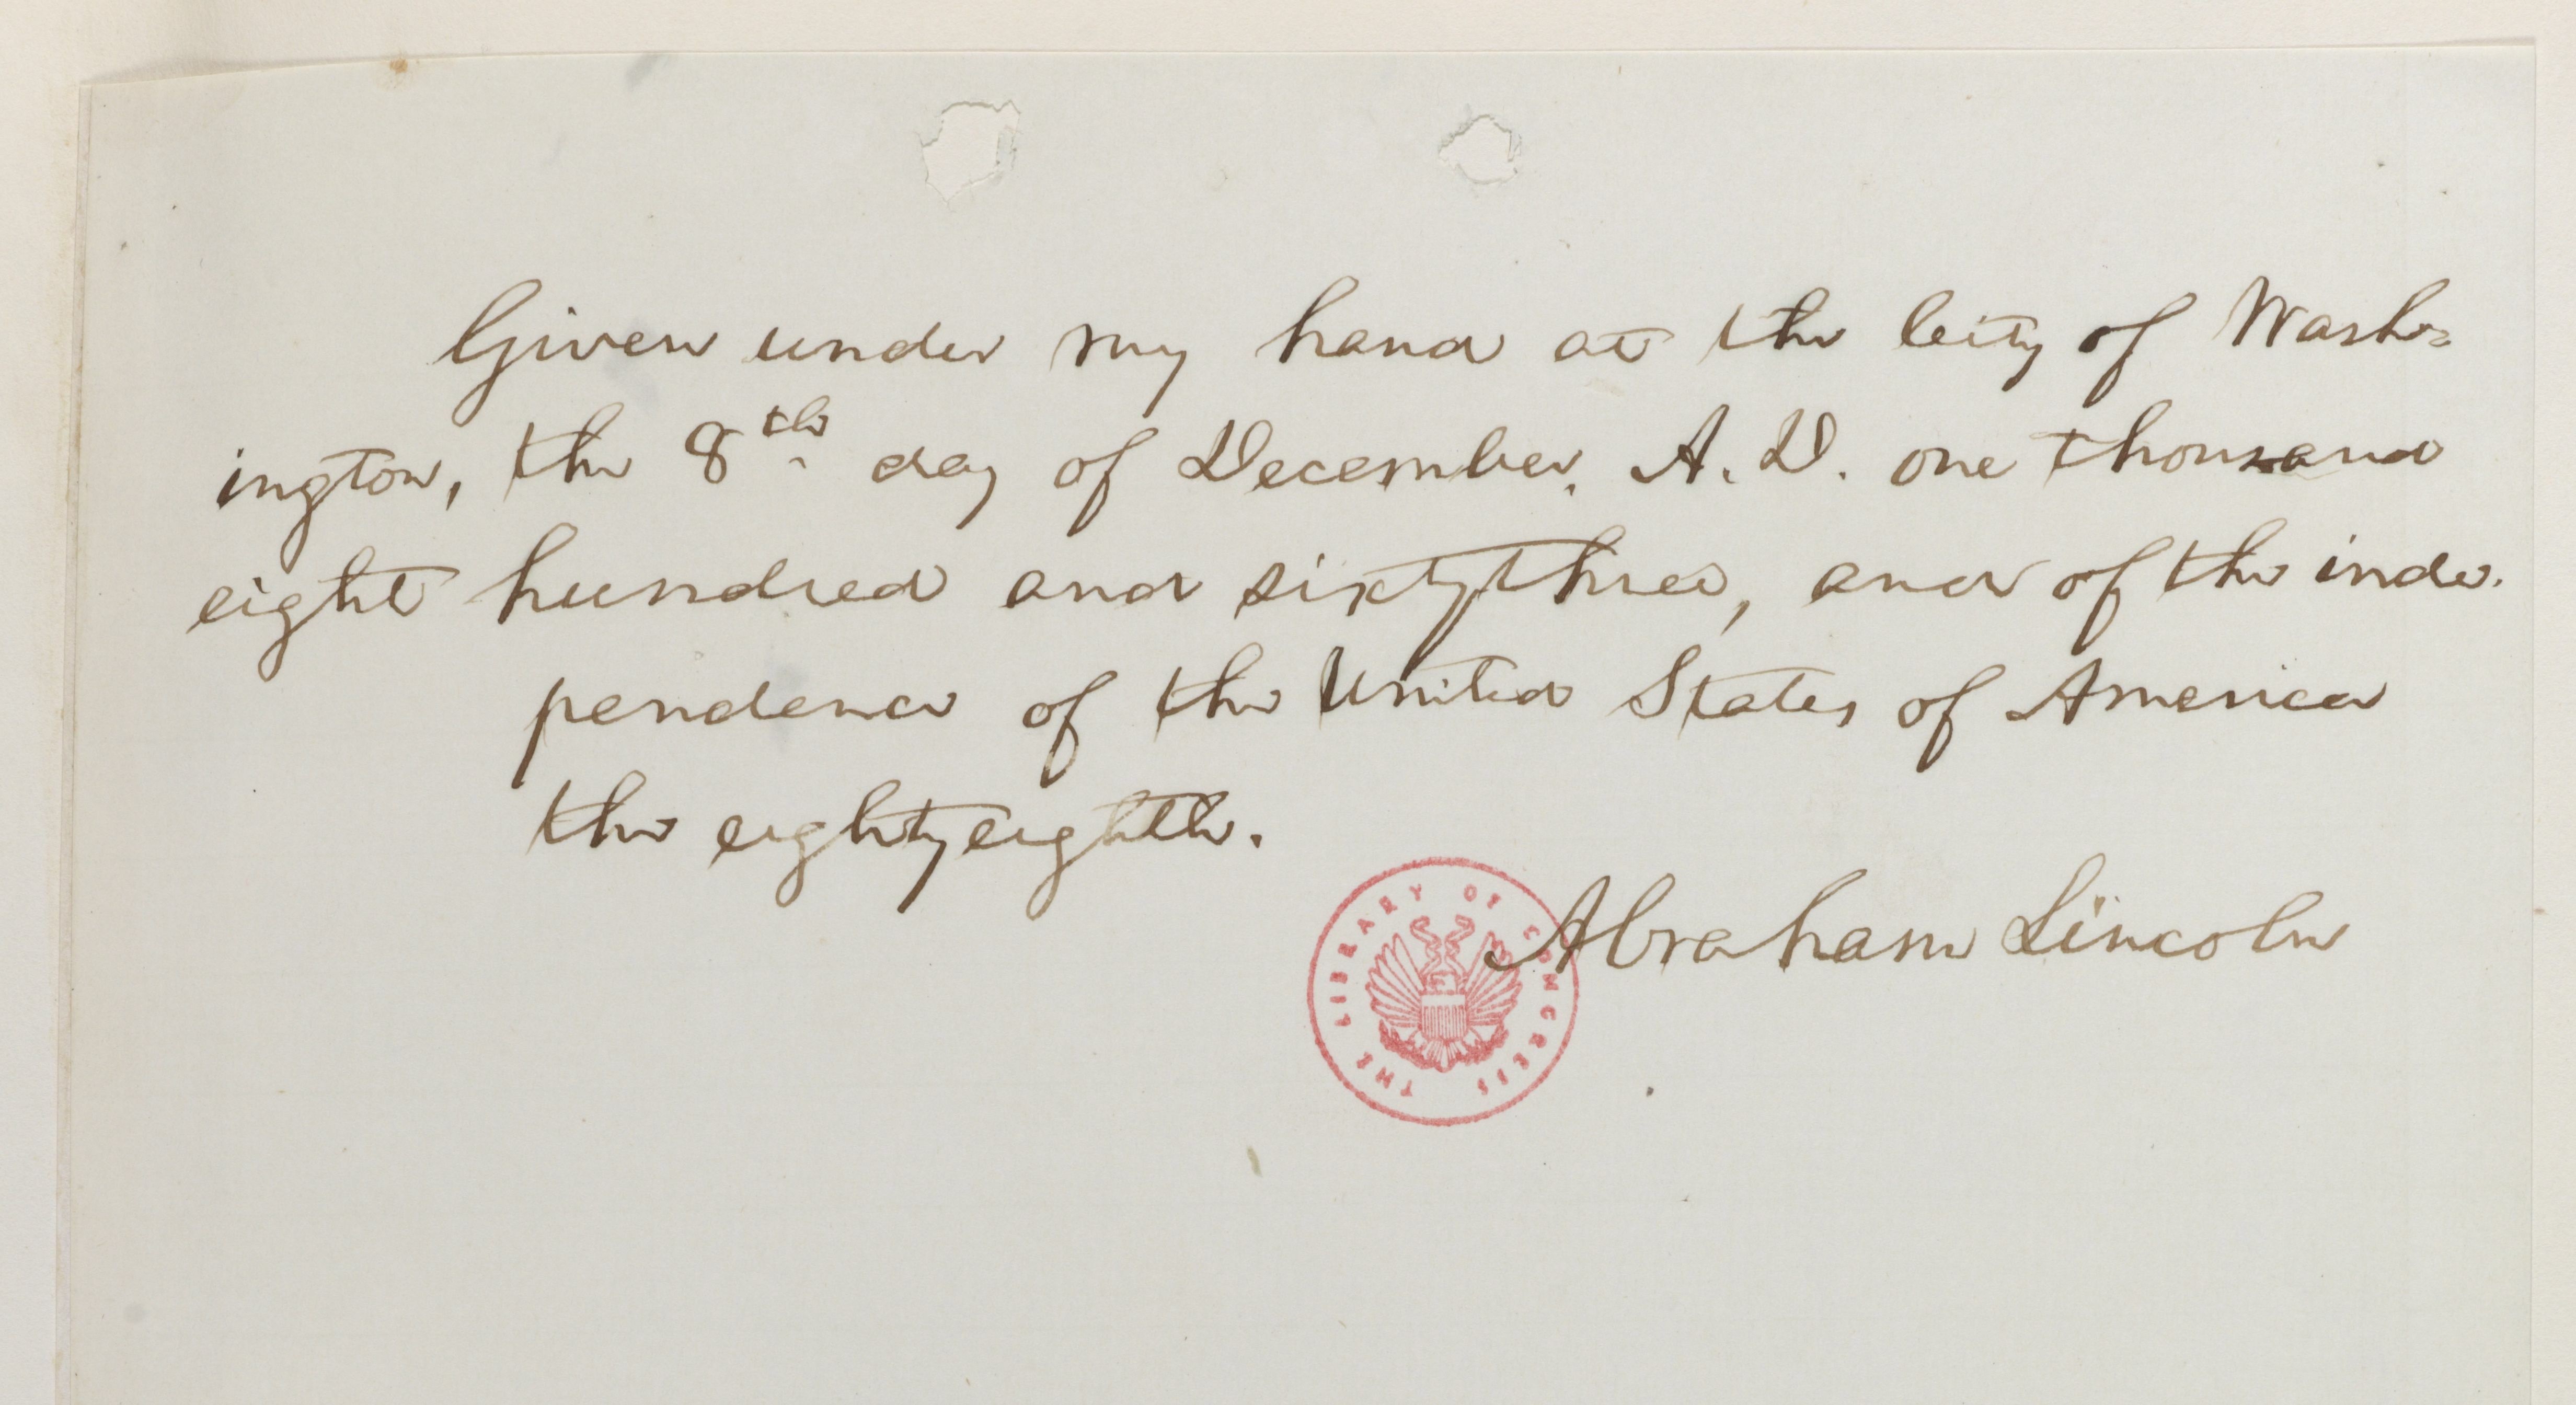 Given under my hand at the City of Wash=
ington, the 8th. day of December, A. D. one thousand
eight hundred and sixtythree, and of the inde-
pendence of the United States of America
the eightyeighth.
Abraham Lincoln
THE LIBRARY OF CONGRESS